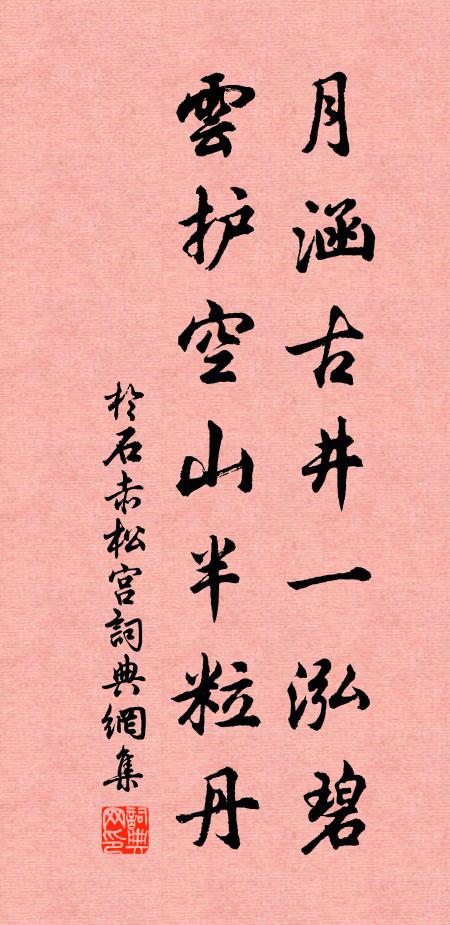 月涵古井一泓碧
雲护空山半粒丹
於石赤松宫詞典網集
詞典网印